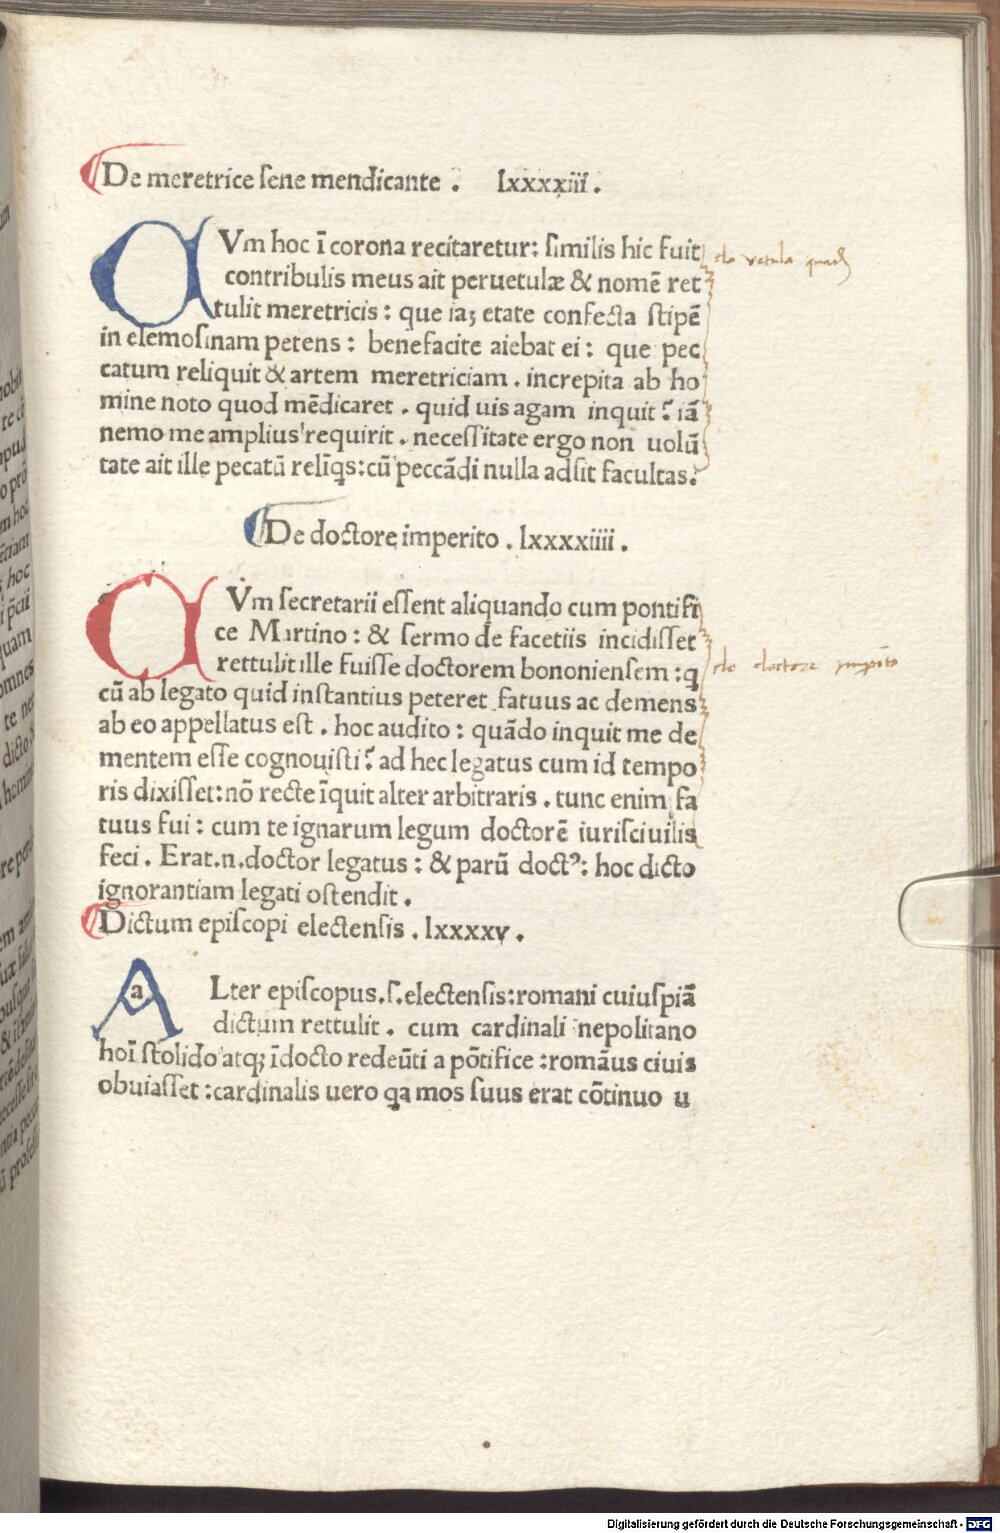 De meretrice ſene mendicante . lxxxxiii .
CVm hoc ī corona recitaretur: ſimilis hic fuit
contribulis meus ait peruetulæ & nomē ret
tulit meretricis : que iaꝫ etate confecta ſtipē
in elemoſinam petens : benefacite aiebat ei : que pec
catum reliquit & artem meretriciam . increpita ab ho
mine noto quod mēdicaret . quid uis agam inquit ? iā
nemo me amplius requirit . neceſſitate ergo non uolū
tate ait ille pecatū relīqs : cū peccādi nulla adſit facultas .
de vetula
De doctore imperito . lxxxxiiii .
CVm ſecretarii eſſent aliquando cum pontifi
ce Martino : & ſermo de facetiis incidiſſet
rettulit ille fuiſſe doctorem bononienſem : q
cū ab legato quid inſtantius peteret fatuus ac demens
ab eo appellatus eſt . hoc audito : quādo inquit me de
mentem eſſe cognouiſti ? ad hec legatus cum id tempo
ris dixiſſet : nō recte īquit alter arbitraris . tunc enim fa
tuus fui : cum te ignarum legum doctorē iuriſciuilis
feci . Erat .n. doctor legatus : & parū doctꝰ : hoc dicto
ignorantiam legati oſtendit .
de doctore imperito
Dictum epiſcopi electenſis . lxxxxv .
ALter epiſcopus .ſ. electensis : romani cuiuſpiā
dictum rettulit . cum cardinali nepolitano
hoī ſtolido atqꝫ īdocto redeūti a pōtifice : romāus ciuis
obuiaſſet : cardinalis uero qa mos ſuus erat cōtinuo u
Digitalisierung gefördert durch die Deutsche Forschungsgemeinschaft - DFG